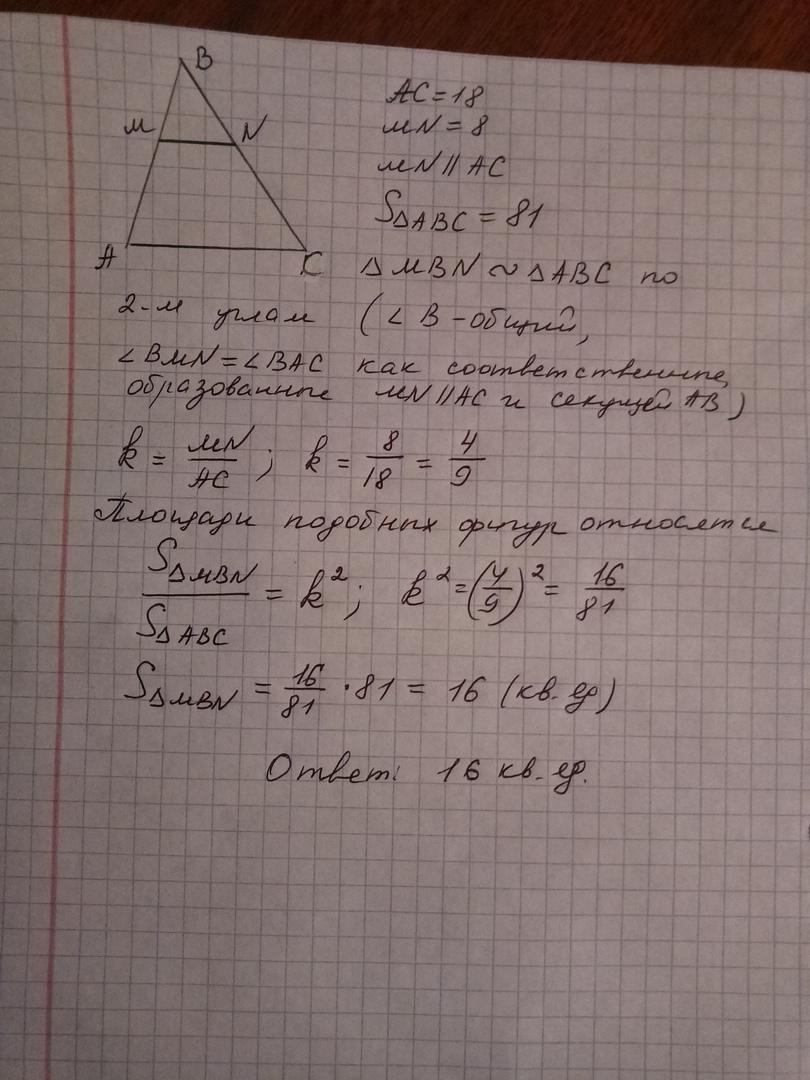 B
M N
A C
AC = 18
MN = 8
MN || AC
S△ABC = 81
△MBN ∾ △ABC по
2-м углам (∠B - общий,
∠BMN = ∠BAC как соответственные,
образованные MN || AC и секущей AB)
k = MN/AC ; k = 8/18 = 4/9
Площади подобных фигур относятся
S△MBN/S△ABC = k²; k² = (4/9)² = 16/81
S△MBN = 16/81 · 81 = 16 (кв. ед)
Ответ: 16 кв. ед.